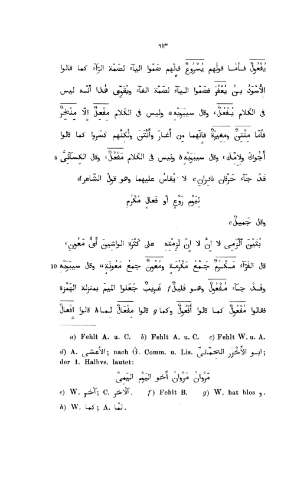 ٦٣
يُفْعُولٌ فـأمـا قولهم يُسْرُوعٌ فإنّهم ضمّوا اليآء لضمّة الرآء كما قالوا
الأَسْوَدُ بن يُعْفُرَ فضمّوا اليآء لضمّة الفآء ويُقوِّى هٰذا أنّه ليس
فى الكلام يُفْعُلٌ، وقال سيبويه a وليس فى الكلام مِفْعِلٌ إلّا مِنْخِرٌ
فأمّا مِنْتِنٌ ومِغِيرَةٌ فإنّهما من أغار وأَنْتَنَ ولكنّهم كسروا كما قالوا
أَجُوءُك ولِإمِّك، وقال سيبويه b وليس فى الكلام مَفْعُلٌ، وقال الكسآئى c
قد جآء حرفان نادران d لا يقاس عليهما وهو قول الشاعر
لِيَوْمِ رَوْعٍ أو فَعالِ مَكْرُمِ
وقال جميل e
بُثَيْنَ الْزَمِى لا إنَّ لا إنْ لَزِمْتِهِ على كَثْرَةِ الواشِينَ أَىُّ مَعُونِ
قال الفرّآء مَكْرُمٌ جَمْعُ مَكْرُمَةٍ ومَعُونٌ جمعُ مَعُونَةٍ، وقال سيبويه 10
وقد جآء مُفْعُولٌ وهو قليل f غريبٌ جعلوا الميم بمنزلة الهمزة
فقالوا مُفْعُولٌ كما قالوا أُفْعُولٌ وكما g قالوا مِفْعالٌ كما h قالوا إفْعالٌ
a) Fehlt A. u. C. b) Fehlt A. u. C. c) Fehlt W. u. A.
d) A. الأعشى; nach G. Comm. u. Lis. ابـو الأَخْزَر الحِمّانى;
der 1. Halbvs. lautet:
مَرْوانُ مَرْوانُ أخو اليَوْمِ اليَمِى
e) W. آخر, C. آخـر. f) Fehlt B. g) W. hat blos و.
h) W. كما, A. لمّا.